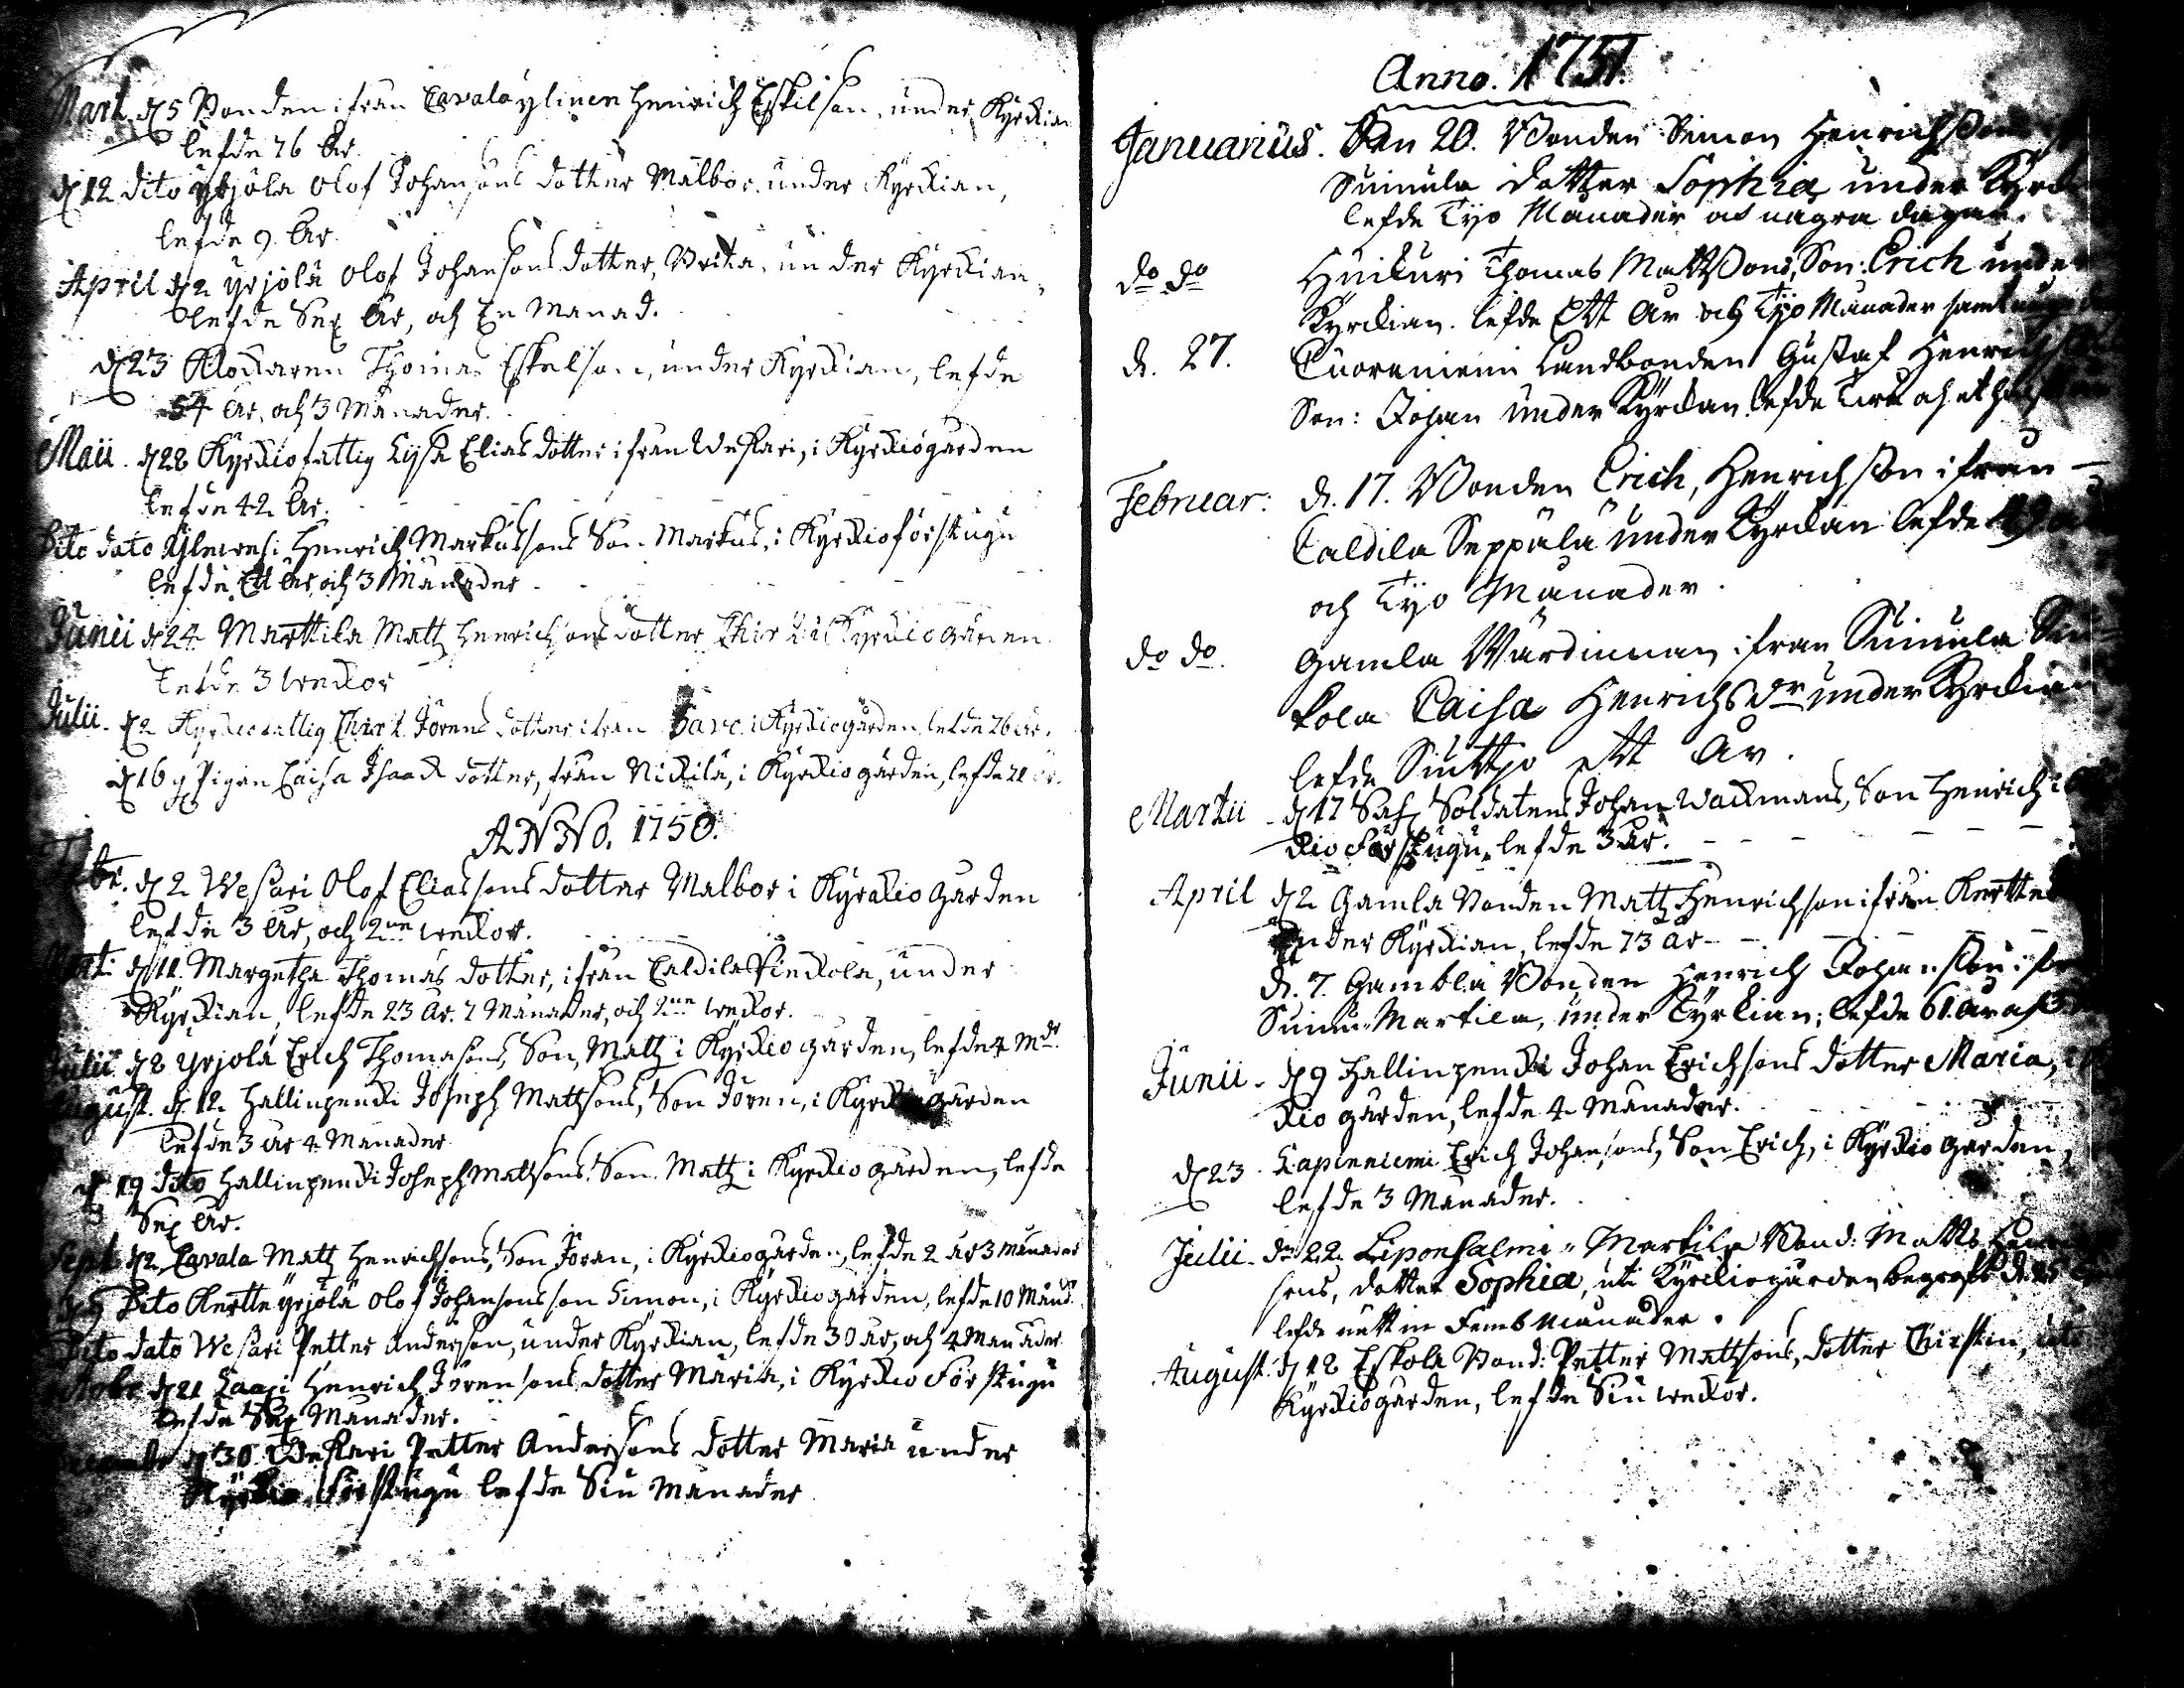 Mart. d 5 Bonden ifrån Cavaløylinen Henrich Eskilson, under Kyrkian
lefde 76 År.
d 12 dito Yrjölä Olof Johansons dotter Malbor, under Kyrkian,
lefde 9 År.
April d 2 Yrjölä Olof Johansons dotter, Brita, under Kyrkian,
lefde Sex År, och En Månad.
d 23 Klockaren Thomas Eskelson, under Kyrkian, lefde
54 År, och 3 Månader.
Maii. d 28 Kyrkiofattig Lisa Elias dotter ifrån Weskari, i Kyrkiogården
lefde 42 År.
Dito dato Henrich Markussons Son Markus, i Kyrkioförstugu
lefde Ett År, och 3 Månader
Junii d 24 Marttila Matz Henrichsons dotter i Kyrkiogården
lefde 3 wekor
Julii. d 2 Kyrkiofattig Jörens dotter ifrån i Kyrkiogården, lefde 76 År.
d 16 Pigan Caisa Isaak dotter, från Nickilä, i Kyrkiogården, lefde 21 år.
ANNO. 1750.
d 2 Wesari Olof Eliassons dotter Malbor i Kyrkio gården
lefde 3 År, och 2ne wekor.
d 11. Margetha Thomas dotter, ifrån Caldila Pickola, under
Kyrkian, lefde 23 År. 7 Månader, och 2ne wekor.
Julii d 8 Yrjölä Erich Thomasons, Son, Matz i Kyrkio gården, lefde 4 Mdr.
August. d. 12 Hallinpenki Joseph Mattsons, Son Jören, i Kyrkiogården
lefde 3 år 4 Månader
d 19 Dito Hallinpenki Joseph Matsons Son. Matz i Kyrkio gården, lefde
Sex År.
Sept d 2 Cavala Matz Henrichsons, Son Jöran, i Kyrkiogården, lefde 2 år 3 månader
d 9 Dito Kertte Yrjölä Olof Johansons son Simon, i Kyrkiogården, lefde 10 Månd.
Dito dato Wesari Petter Anderson, under Kyrkian, lefde 30 år, och 4 Månader
d 21 Henrich Jörensons dotter Maria, i Kyrkio Förstugu
lefde Sex Månader.
d 30. Weskari Petter Andersons dotter Maria under
Kyrkio Förstugu lefde Siu Månader
Anno. 1751.
Januarius. Den 20. Bonden Simon Henrichsons
Suinula dotter Sophia under Kyrk
lefde Tijo Månader och några dagar.
do do Huikuri Thomas Mattsons, Son: Erich under
Kyrckian. lefde Ett År och Tijo Månader samt någ
d. 27. Cuoreniemi Landbonden Gustaf Henrichs
Son: Johan under Kyrckan lefde
Februar: d. 17. Bonden Erich, Henrichson ifrån
Caldila Seppälä under Kyrckan lefde
och Tijo Månader.
do do. Gamla Wärdinnan ifrån Suinula
kola Caisa Henrichs dr under Kyrckian
lefde Siuttijo ett År.
Martii d 17 Soldatens Johan Wackmans, Son Henrich i
kio Förstugu, lefde 3 år.
April d 2 Gamla Bonden Matz Henrichson ifrån Kertte
under Kyrkian, lefde 73 år
d. 7. Gambla Bonden Henrich Johansson
Suinu Martila, under Kyrkian; lefde 61 år
Junii. d 9 Hallinpenki Johan Erichsons dotter Maria,
kio gården, lefde 4 Månader.
d 23 Lapinniemi Erich Johansons, Son Erich, i Kyrkio gården,
lefde 3 Månader.
Julii. dn 22. Liponsalmi Martila Bond: Matts
sons, dotter Sophia, uti Kyrkiogården begrofs
lefde Femb Månader.
August. d 18 Eskola Bond: Petter Matsons, dotter Chirstin, uti
Kyrkiogården, lefde Siu wekor.